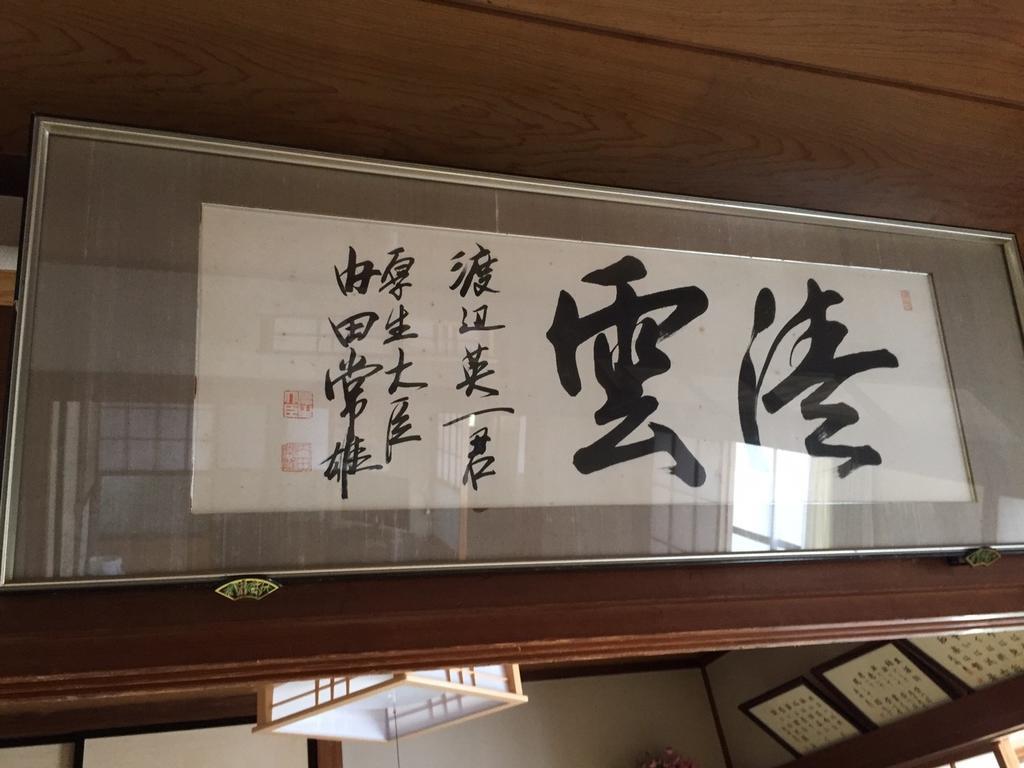 凌雲
渡辺英一君
厚生大臣
内田常雄